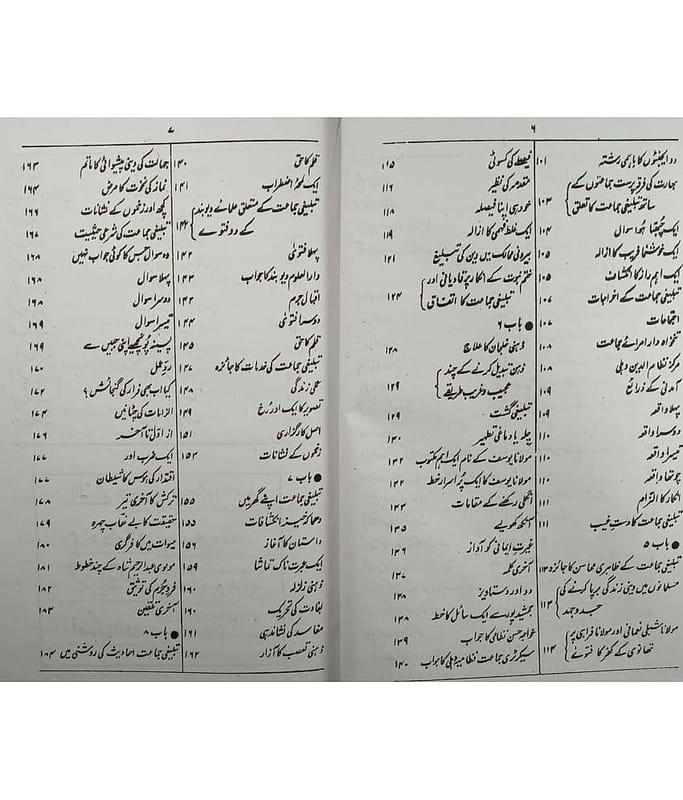 ۶
دو ایجنٹوں کا باہمی رشتہ ۱۰۱
بھارت کی فرقہ پرست جماعتوں کے
ساتھ تبلیغی جماعت کا تعلق ۱۰۳
ایک چبھتا ہوا سوال ۱۰۴
ایک خوشنما فریب کا ازالہ ۱۰۵
ایک اہم راز کا انکشاف ۱۰۵
تبلیغی جماعت کے اخراجات ۱۰۷
اجتماعات ۱۰۷
تنخواہ دار امرائے جماعت ۱۰۸
مرکز نظام الدین دہلی ۱۰۸
آمدنی کے ذرائع ۱۰۹
پہلا واقعہ ۱۰۹
دوسرا واقعہ ۱۱۰
تیسرا واقعہ ۱۱۰
چوتھا واقعہ ۱۱۰
انکار کا الزام ۱۱۱
تبلیغی جماعت کا دستِ غیب ۱۱۱
● باب ۵
تبلیغی جماعت کے ظاہری محاسن کا جائزہ ۱۱۳
مسلمانوں میں دینی زندگی برپا کرنے کی
جدوجہد ۱۱۳
مولانا شبلی نعمانی اور مولانا فراہی پر
تھانوی کے کفر کا فتویٰ ۱۱۴
فیصلہ کی کسوٹی ۱۱۵
مقدمہ کی نظیر ۱۱۶
خود ہی اپنا فیصلہ ۱۱۸
ایک غلط فہمی کا ازالہ ۱۱۹
بیرونی ممالک میں دین کی تبلیغ ۱۲۱
ختم نبوت کے انکار پر قادیانی اور
تبلیغی جماعت کا اتفاق ۱۲۴
● باب ۶
ذہنی خلجان کا علاج ۱۲۸
ذہن تبدیل کرنے کے چند
عجیب و غریب طریقے ۱۲۹
تبلیغی گشت ۱۲۹
چلہ یا دماغی تطہیر ۱۳۰
مولانا یوسف کے نام ایک اہم مکتوب ۱۳۲
مولانا یوسف کا ایک پُراسرار خط ۱۳۲
انگلی رکھنے کے مقامات ۱۳۳
آنکھ کھولیے ۱۳۵
غیرتِ ایمانی کو آواز ۱۳۶
آخری کلمہ ۱۳۷
دو اور دستاویز ۱۳۸
جمشید پور سے ایک سائل کا خط ۱۳۸
خواجہ حسن نظامی کا جواب ۱۳۹
سیکرٹری جماعت نظامیہ دہلی کا جواب ۱۴۰
۷
قلم کا حق ۱۴۰
ایک لمحۂ اضطراب ۱۴۱
تبلیغی جماعت کے متعلق علمائے دیوبند
کے دو فتوے ۱۴۲
پہلا فتویٰ ۱۴۲
دارالعلوم دیوبند کا جواب ۱۴۳
اقبال جرم ۱۴۳
دوسرا فتویٰ ۱۴۴
قلم کا حق ۱۴۵
تبلیغی جماعت کی خدمات کا جائزہ ۱۴۷
عملی زندگی ۱۴۸
تصویر کا ایک اور رُخ ۱۴۹
اصل کارگزاری ۱۵۱
زخموں کے نشانات ۱۵۳
● باب ۷
تبلیغی جماعت اپنے گھر میں ۱۵۵
دھماکہ خیز انکشافات ۱۵۵
داستان کا آغاز ۱۵۶
ایک عبرت ناک تماشا ۱۵۹
ذہنی زلزلہ ۱۶۰
بغاوت کی تحریک ۱۶۰
مفاسد کی نشاندہی ۱۶۱
ذہنی تعصب کا آزار ۱۶۲
جہالت کی دینی پیشوائی کا ماتم ۱۶۳
نماز کی نخوت کا مرض ۱۶۴
کچھ اور زخموں کے نشانات ۱۶۶
تبلیغی جماعت کی شرعی حیثیت ۱۶۷
وہ سوال جس کا کوئی جواب نہیں ۱۶۸
پہلا سوال ۱۶۸
دوسرا سوال ۱۶۸
تیسرا سوال ۱۶۹
پسینہ پونچھیے اپنی جبیں سے ۱۶۹
ردِّ عمل ۱۷۰
کیا اب بھی فرار کی گنجائش ؟ ۱۷۲
الزامات کی چٹانیں ۱۷۴
از اوّل تا آخر ۱۷۶
ایک ضرب اور ۱۷۷
اقتدار کی ہوس کا شیطان ۱۷۷
ترکش کا آخری تیر ۱۷۸
حقیقت کا بے نقاب چہرہ ۱۷۹
میوات میں کافر گری ۱۸۰
مولوی عبدالرحیم شاہ کے چند خطوط ۱۸۱
فردِ جرم کی توثیق ۱۸۲
آخری تلقین ۱۸۳
● باب ۸
تبلیغی جماعت احادیث کی روشنی میں ۱۸۴